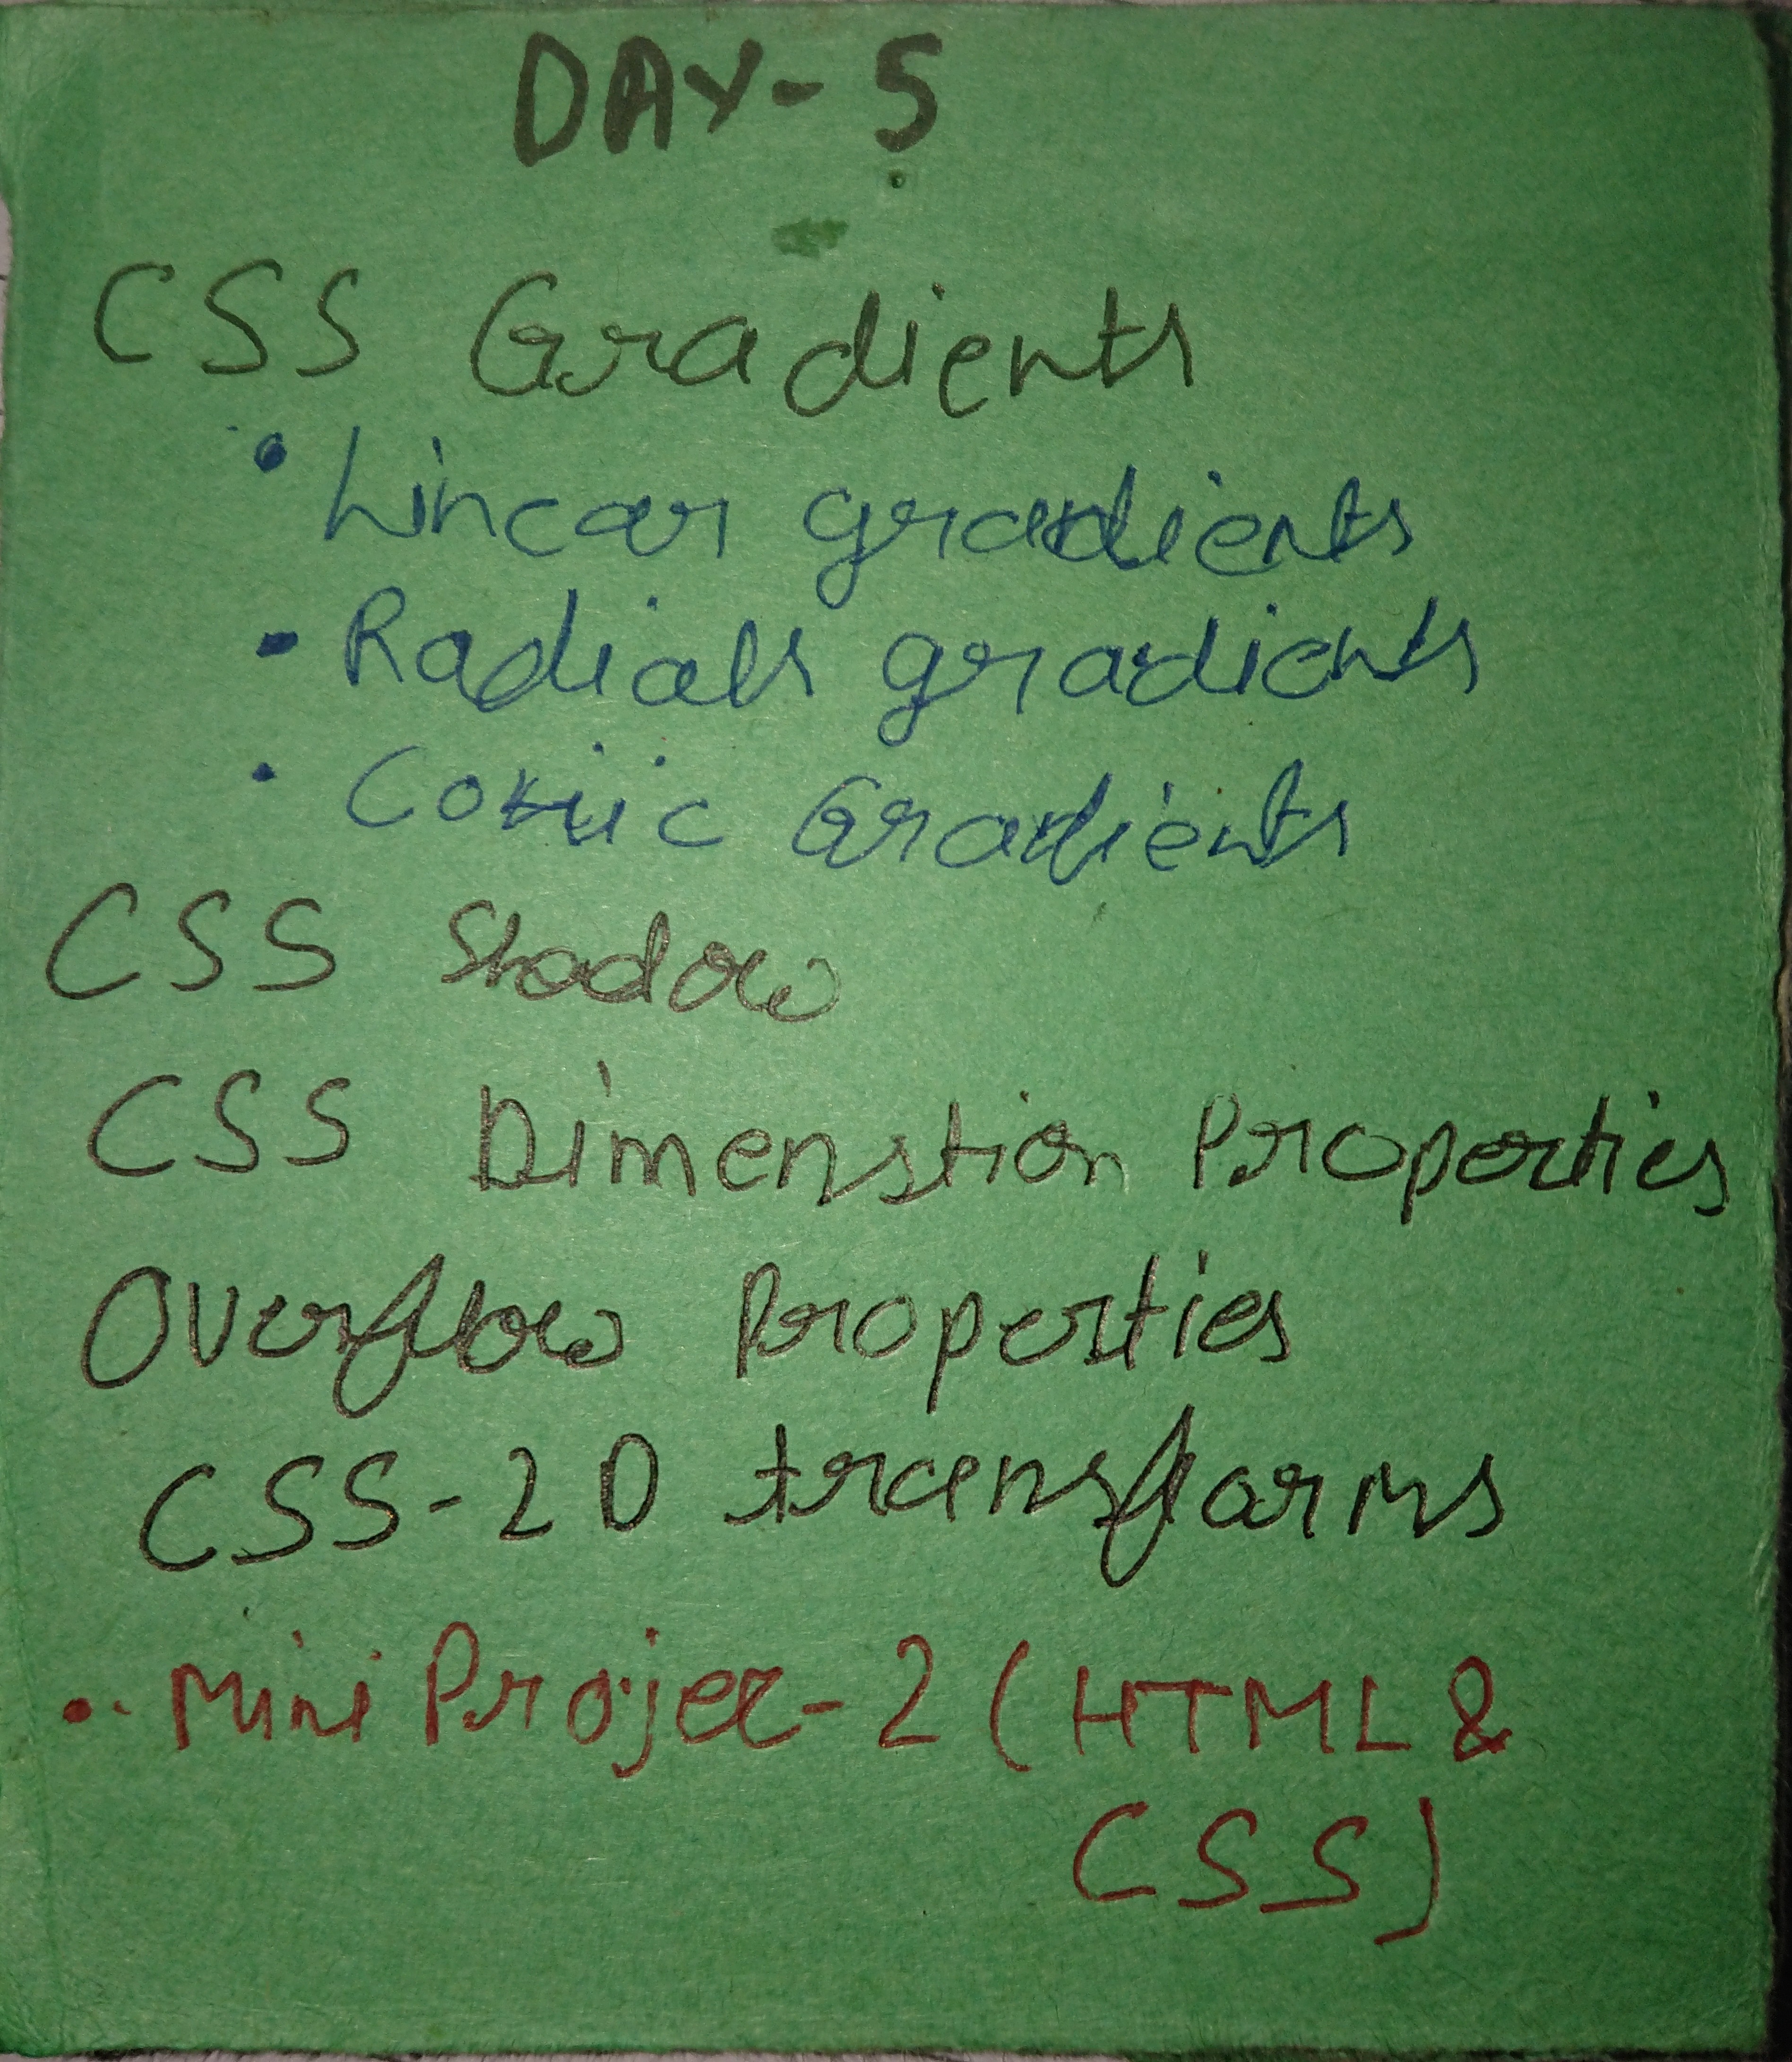 DAY-5
CSS Gradients
• Linear gradients
• Radials gradients
• Conic Gradients
CSS Shadow
CSS Dimenstion Properties
Overflow Properties
CSS-2D transforms
• Mini Projec-2 (HTML &
CSS)